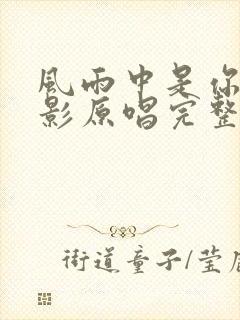 風雨中是你
影原唱完整
街道童子/莹